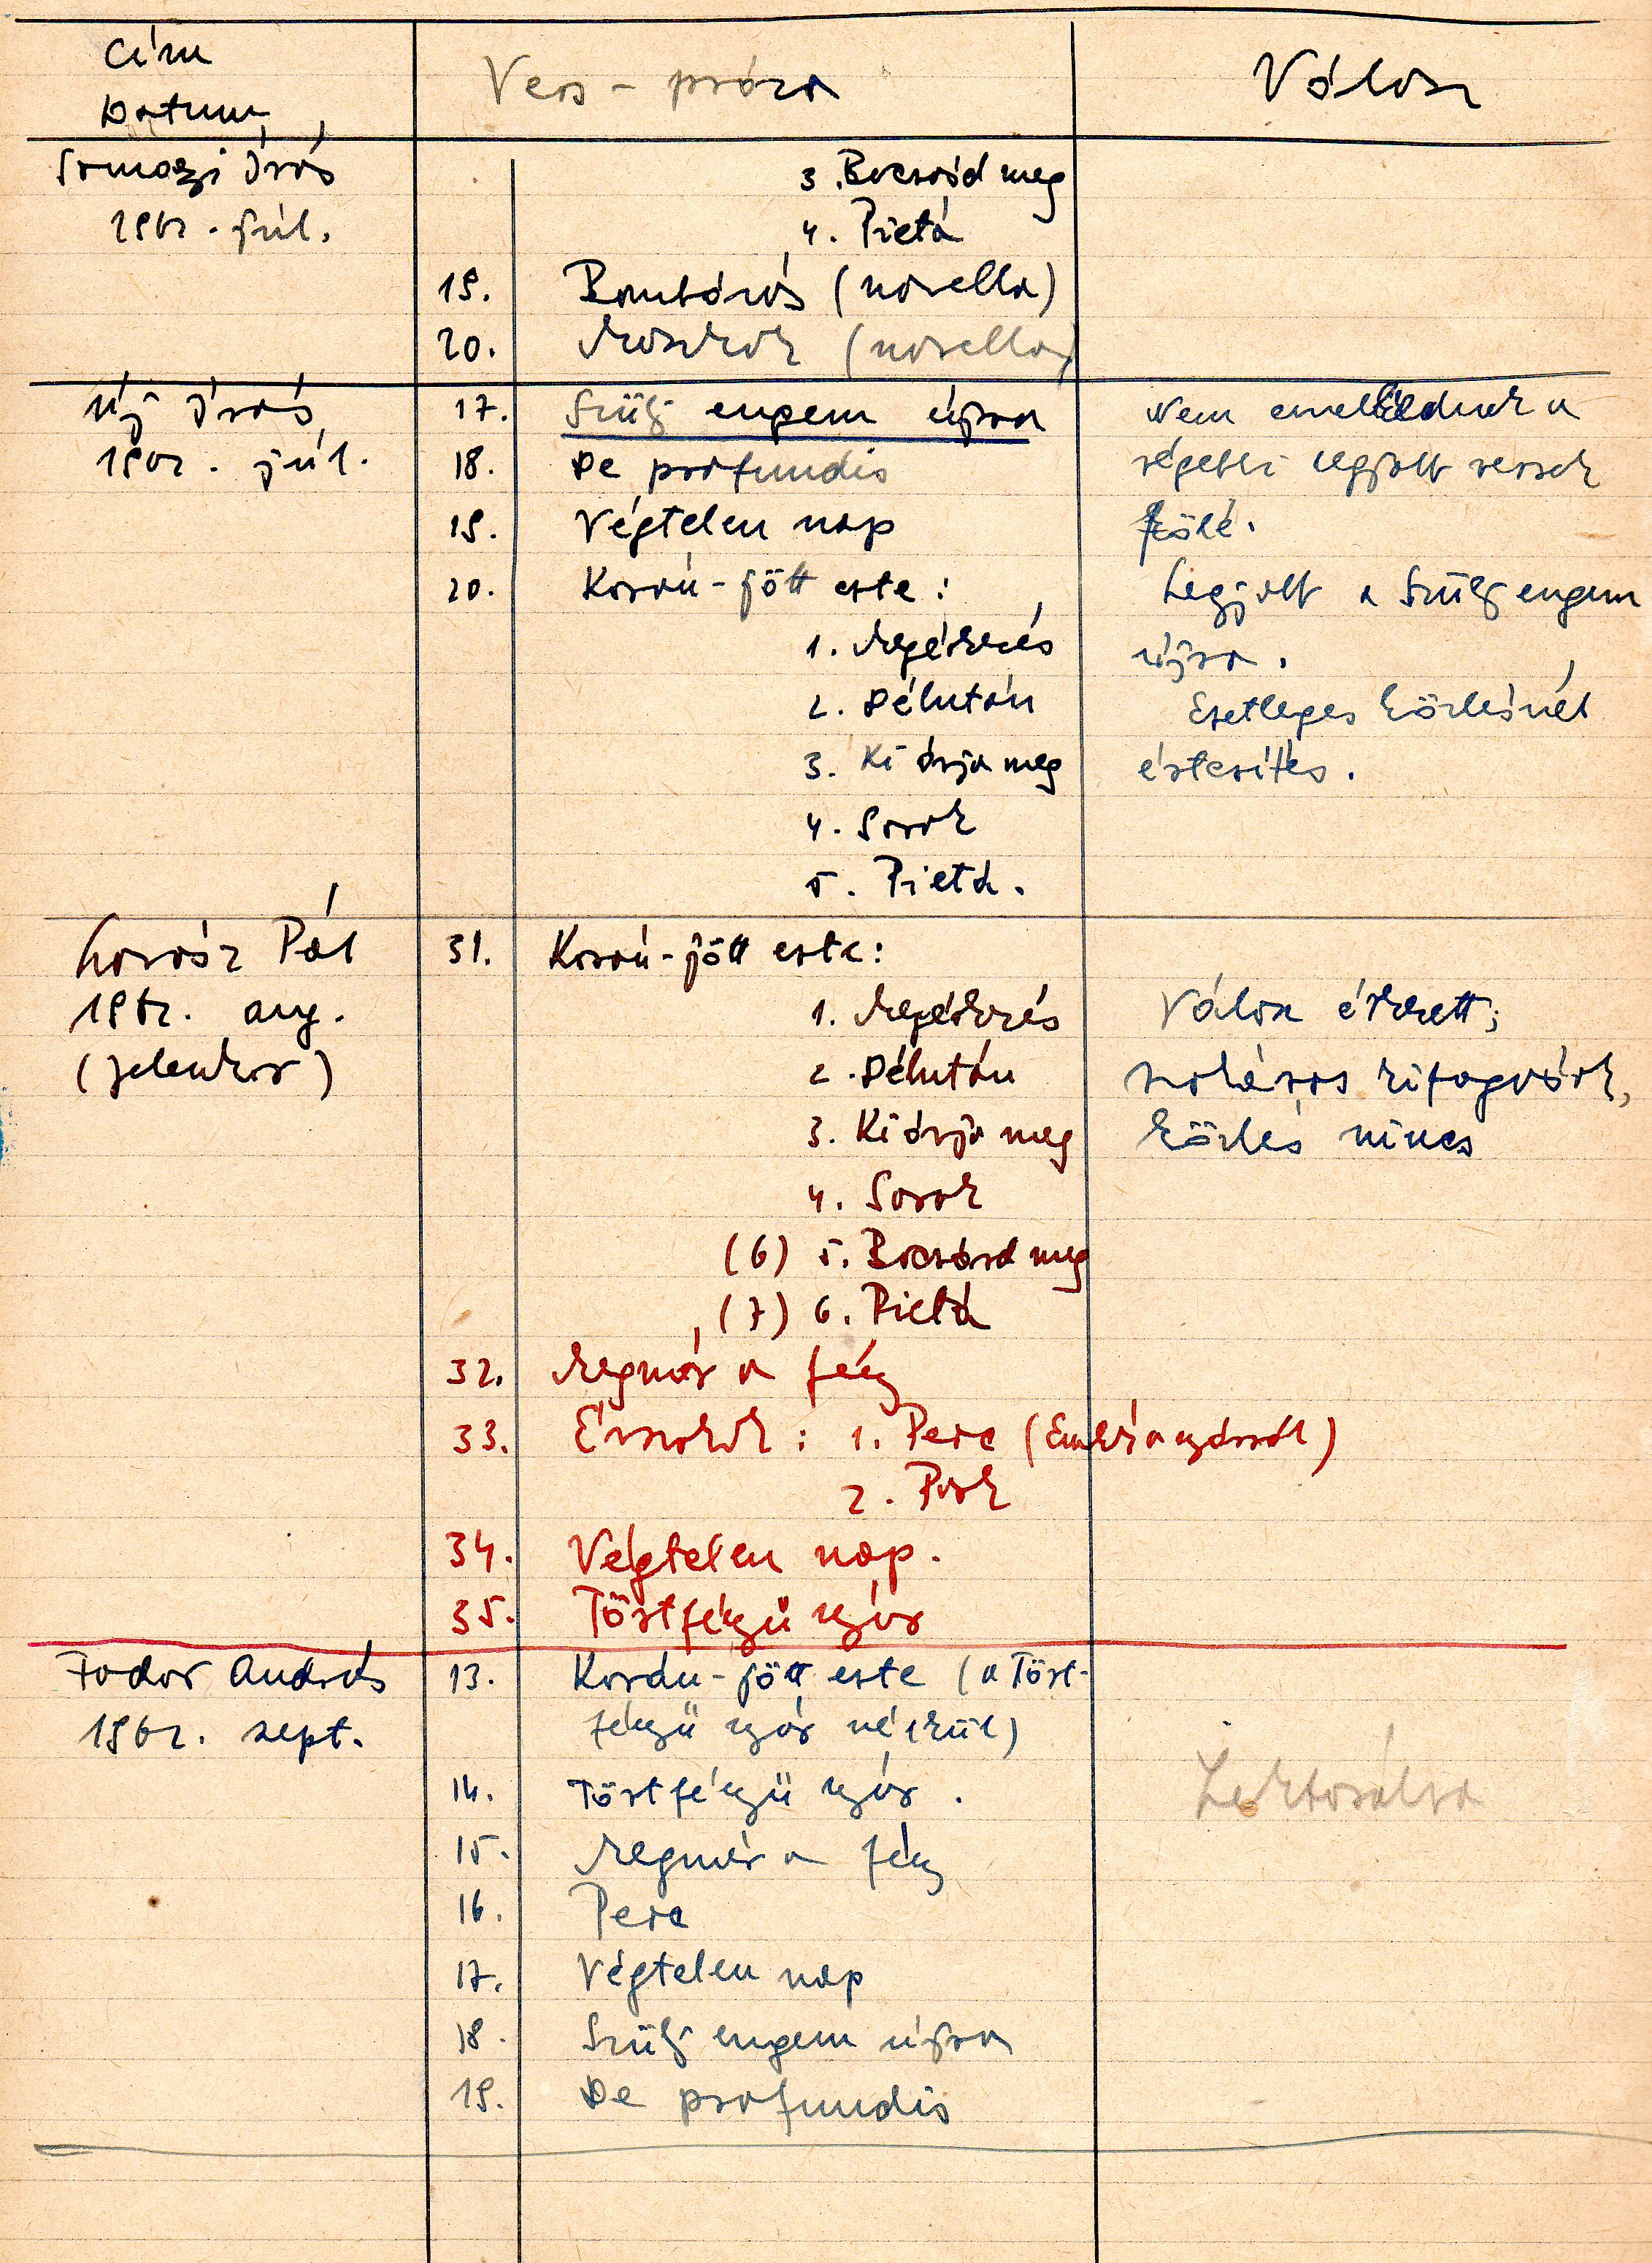 Cím
Datum
Vers - próza
Válasz
Somogyi Írás
1962. júl.
3. Bocsásd meg
4. Pietá
19. Rombárás (novella)
20. (novella)
Új Írás
1962. júl.
17. Szülj engem újra
18. De profundis
19. Végtelen nap
20. Korán-jött este:
1. Megérkezés
2. Délután
3. Ki óvja meg
4. Sorok
5. Pietá.
Nem emelkednek a
régebbi legjobb versek
fölé.
Legjobb a Szülj engem
újra.
Esetleges közlésnél
értesítés.
Lovász Pál
1962. aug.
(Jelenkor)
31. Korán-jött este:
1. Megérkezés
2. Délután
3. Ki óvja meg
4. Sorok
(6) 5. Bocsásd meg
(7) 6. Pietá
32. Megmar a fény
33. Évszakok: 1. Perc (Emlék a nyárról)
2. Park
34. Végtelen nap.
35. Törtfényű nyár
Válasz érkett;
szokásos kifogások,
közlés nincs
Fodor András
1962. szept.
13. Korán-jött este (a Tört-
fényű nyár nélkül)
14. Törtfényű nyár.
15. Megmar a fény
16. Perc
17. Végtelen nap
18. Szülj engem újra
19. De profundis
Lektorálva